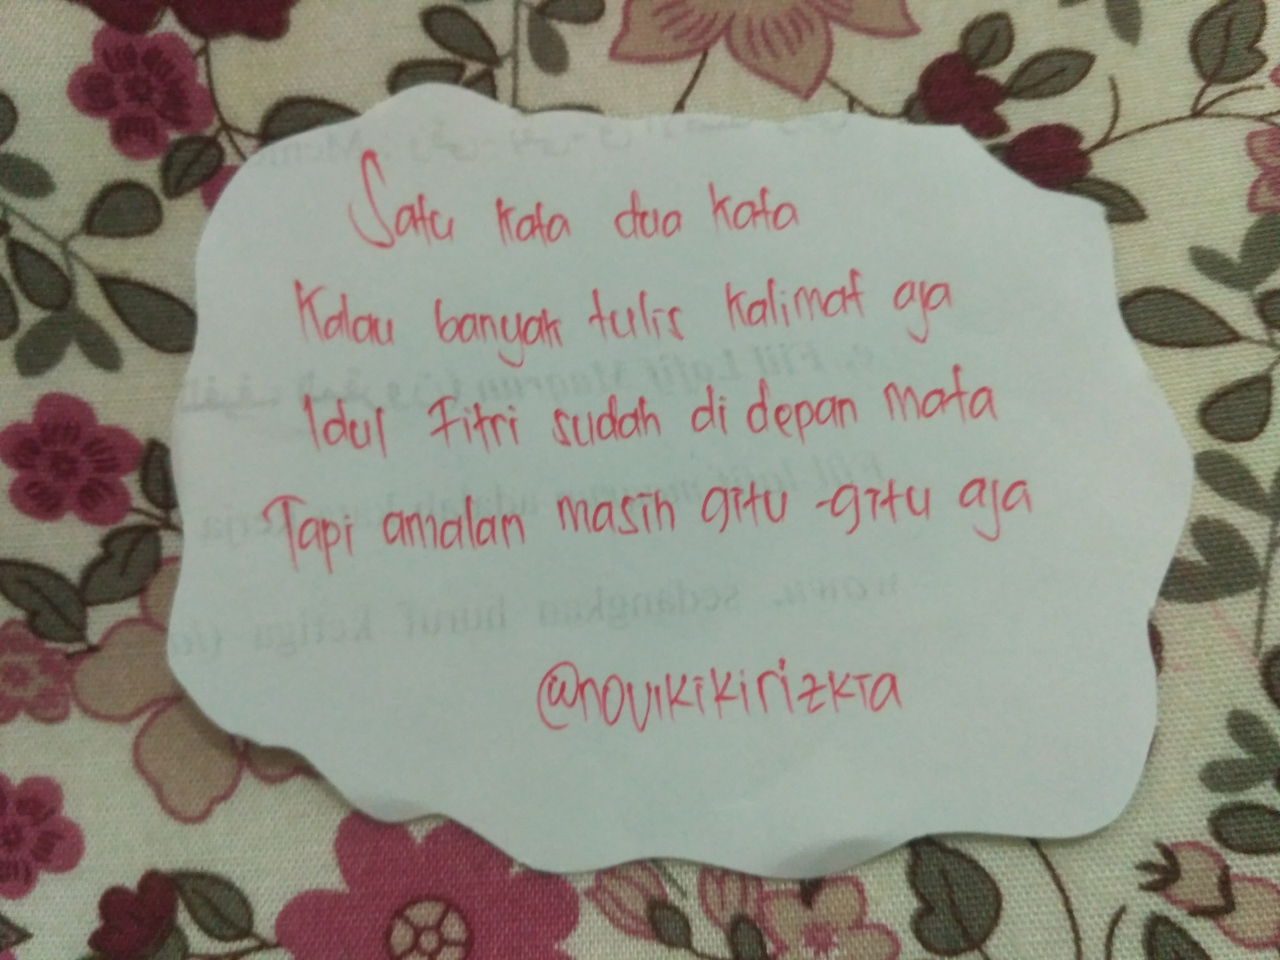 Satu kata dua kata
Kalau banyak tulis kalimat aja
Idul Fitri sudah di depan mata
Tapi amalan masih gitu-gitu aja
@novikikirizkia